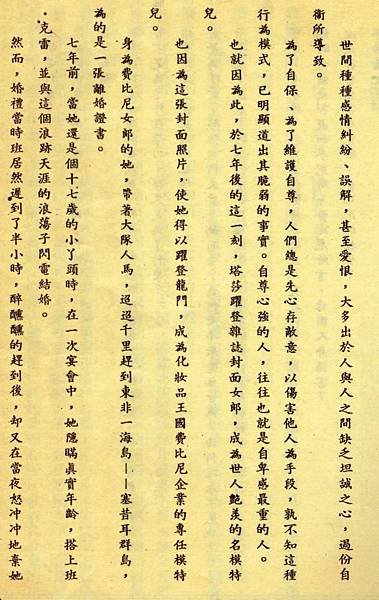 世間種種感情糾紛、誤解，甚至愛恨，大多出於人與人之間缺乏坦誠之心，過份自
衞所導致。
為了自保、為了維護自尊，人們總是先心存敵意，以傷害他人為手段，孰不知這種
行為模式，已明顯道出其脆弱的事實。自尊心強的人，往往也就是自卑感最重的人。
也就因為此，於七年後的這一刻，塔莎躍登雜誌封面女郎，成為世人艷羨的名模特
兒。
也因為這張封面照片，使她得以躍登龍門，成為化妝品王國費比尼企業的專任模特
兒。
身為費比尼女郎的她，帶著大隊人馬，迢迢千里趕到東非一海島——塞昔耳群島，
為的是一張離婚證書。
七年前，當她還是個十七歲的小丫頭時，在一次宴會中，她隱瞞眞實年齡，搭上班
．克雷，並與這個浪跡天涯的浪蕩子閃電結婚。
然而，婚禮當時班居然遲到了半小時，醉醺醺的趕到後，却又在當夜怒冲冲地棄她